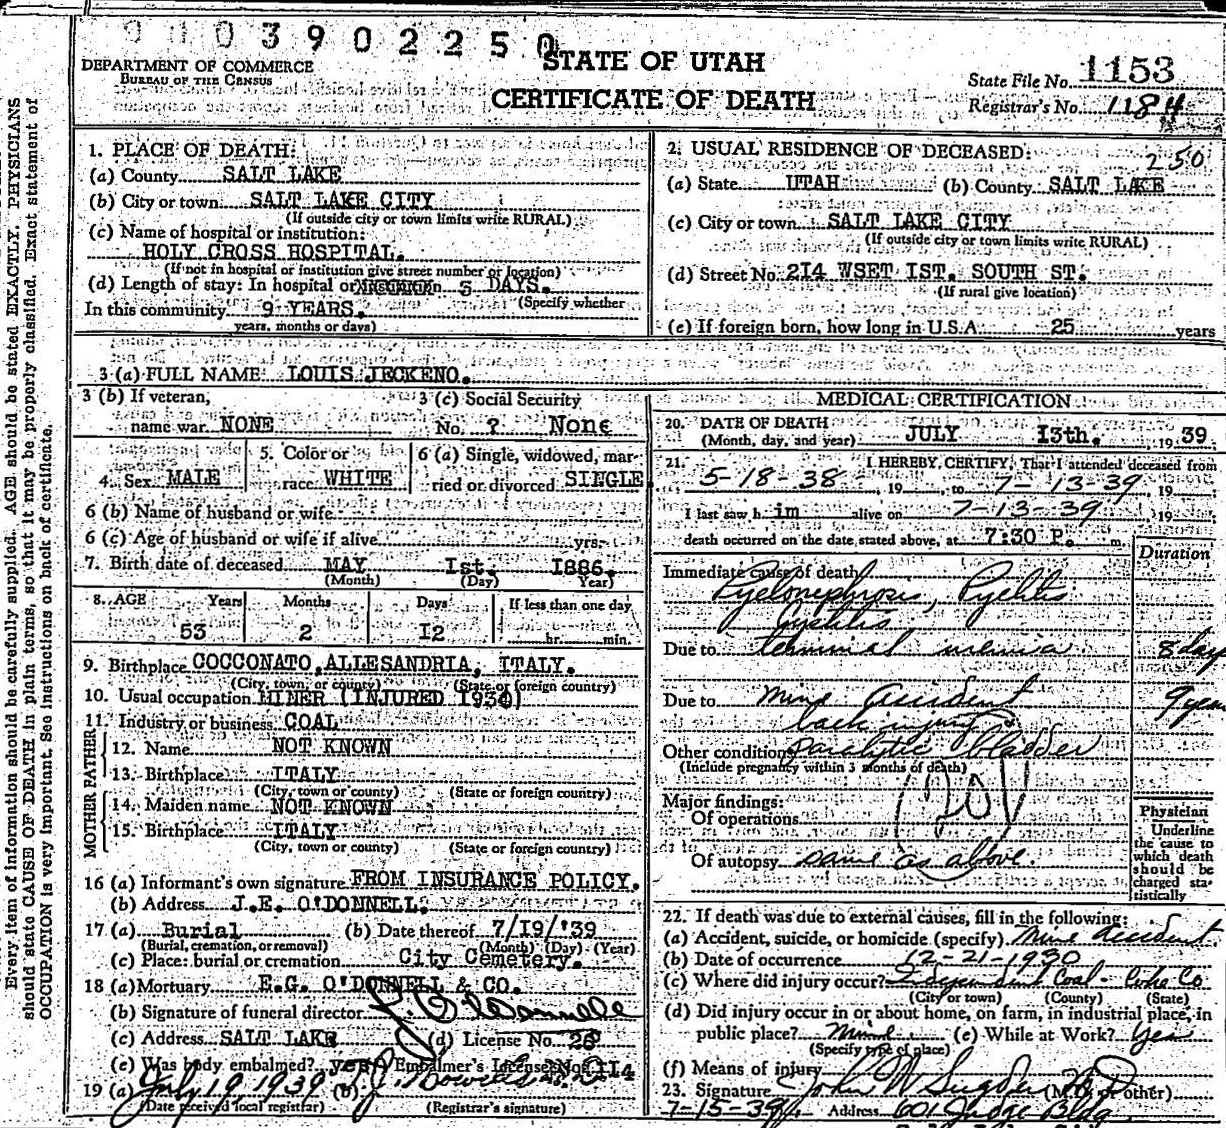 91103902250
STATE OF UTAH
CERTIFICATE OF DEATH
DEPARTMENT OF COMMERCE
BUREAU OF THE CENSUS
State File No. 1153
Registrar's No. 1184
Every item of information should be carefully supplied. AGE should be stated EXACTLY. PHYSICIANS
should state CAUSE OF DEATH in plain terms, so that it may be properly classified. Exact statement of
OCCUPATION is very important. See instructions on back of certificate.
1. PLACE OF DEATH:
(a) County SALT LAKE
(b) City or town SALT LAKE CITY
(If outside city or town limits write RURAL)
(c) Name of hospital or institution:
HOLY CROSS HOSPITAL.
(If not in hospital or institution give street number or location)
(d) Length of stay: In hospital or 5 DAYS.
(Specify whether
In this community 9 YEARS.
years, months or days)
2. USUAL RESIDENCE OF DECEASED:
250
(a) State UTAH (b) County SALT LAKE
(c) City or town SALT LAKE CITY
(If outside city or town limits write RURAL)
(d) Street No. 214 WSET IST. SOUTH ST.
(If rural give location)
(e) If foreign born, how long in U.S.A. 25 years
3 (a) FULL NAME LOUIS JECKENO.
3 (b) If veteran, name war NONE
3 (c) Social Security No. ? None
4. Sex MALE
5. Color or race WHITE
6 (a) Single, widowed, married or divorced SINGLE.
6 (b) Name of husband or wife
6 (c) Age of husband or wife if alive yrs.
7. Birth date of deceased MAY Ist. I886.
(Month) (Day) Year)
8. AGE Years Months Days If less than one day
53 2 I2 hr. min.
9. Birthplace COCCONATO, ALLESANDRIA, ITALY.
(City, town, or county) (State or foreign country)
10. Usual occupation MINER (INJURED 1930)
11. Industry or business COAL
FATHER
12. Name NOT KNOWN
13. Birthplace ITALY
(City, town or county) (State or foreign country)
MOTHER
14. Maiden name NOT KNOWN
15. Birthplace ITALY
(City, town or county) (State or foreign country)
16 (a) Informant's own signature FROM INSURANCE POLICY.
(b) Address J.E. O'DONNELL.
17 (a) Burial (b) Date thereof 7/19/'39
(Burial, cremation, or removal) (Month) (Day) (Year)
(c) Place: burial or cremation City Cemetery.
18 (a) Mortuary E.G. O'DONNELL & CO.
(b) Signature of funeral director O'Donnell
(c) Address SALT LAKE (d) License No. 26
(e) Was body embalmed? yes Embalmer's License No. 114
19 (a) July 19 1939 (b)
(Date received local registrar) (Registrar's signature)
MEDICAL CERTIFICATION
20. DATE OF DEATH
(Month, day, and year) JULY I3th. 1939
21. I HEREBY CERTIFY, That I attended deceased from
5-18-38, 19 to 7-13-39, 19
I last saw h im alive on 7-13-39 19
death occurred on the date stated above, at 7:30 P. m.
Duration
Immediate cause of death
Pyelonephrosis, Pyelitis
Cystitis
Due to terminal uremia 8 days
Due to mine accident 9 years
back injury &
Other conditions paralytic bladder
(Include pregnancy within 3 months of death)
Major findings:
Of operations
201
Of autopsy same as above.
Physician
Underline
the cause to
which death
should be
charged sta-
tistically
22. If death was due to external causes, fill in the following:
(a) Accident, suicide, or homicide (specify) Mine Accident
(b) Date of occurrence 12-21-1930
(c) Where did injury occur? Independent Coal - Coke Co
(City or town) (County) (State)
(d) Did injury occur in or about home, on farm, in industrial place, in
public place? Mine (e) While at Work? Yes
(Specify type of place)
(f) Means of injury
23. Signature John W Sugden MD (M.D. or other)
7-15-39 Address 601 Judge Bldg